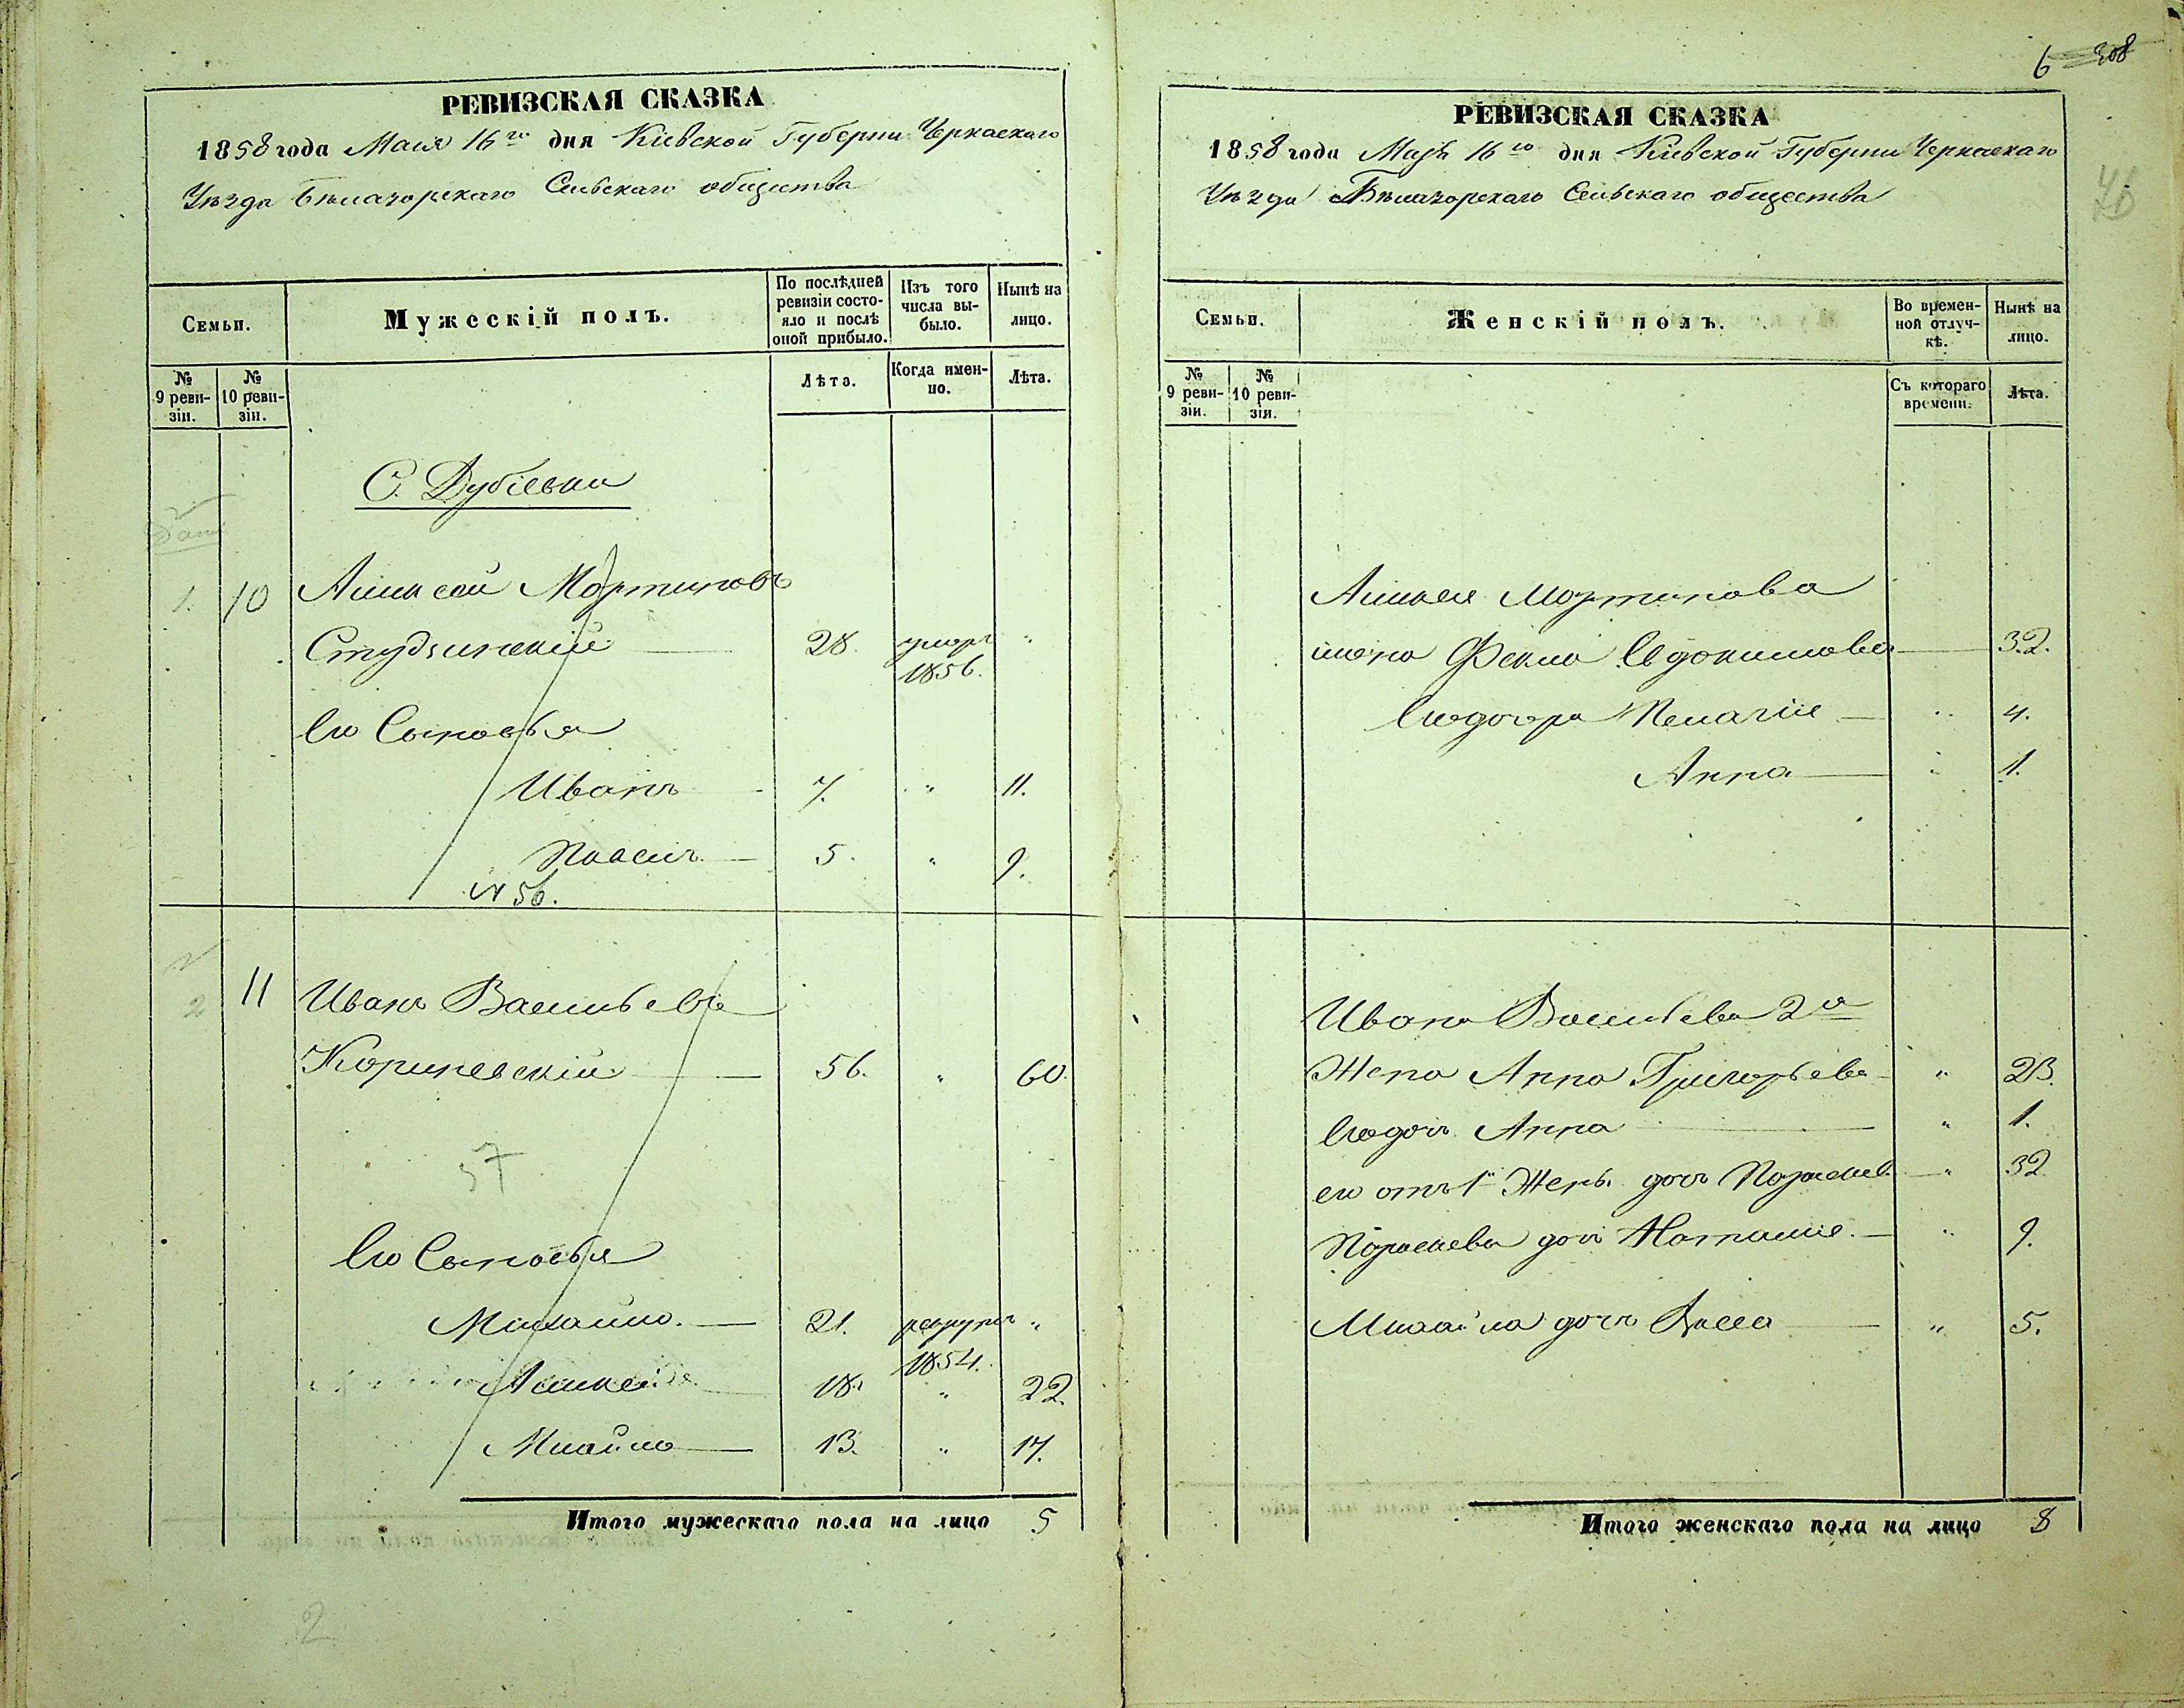 РЕВИЗСКАЯ СКАЗКА
1858 года Маия 16го дня Кіевской Губерніи Черкаскаго
Уѣзда Бѣлазорскаго Сельскаго общества
Семьи.
Мужескій полъ.
По послѣдней ревизіи состояло и послѣ оной прибыло.
Изъ того числа выбыло.
Нынѣ на лицо.
№ 9 ревизіи.
№ 10 ревизіи.
Лѣта.
Когда именно.
Лѣта.
С. Дубіевки
1. 10 Алексѣй Мартиновъ
Студзинскій 28. умеръ 1856. "
Его Сыновья
Иванъ 7. " 11.
5. " 9.
№ 56.
2 11 Иванъ Васильевъ
Кориневскій 56. " 60.
57
Его Сыновья
Михайло. 21. рекрутъ 1854. "
Алексей 18. " 22.
Михайло 13. " 17.
Итого мужескаго пола на лицо 5
2
6 308
РЕВИЗСКАЯ СКАЗКА
1858 года Маія 16го дня Кіевской Губерніи Черкаскаго
Уѣзда Бѣлазорскаго Сельскаго общества
Семьи.
Женскій полъ.
Во временной отлучкѣ.
Нынѣ на лицо.
№ 9 ревизіи.
№ 10 ревизіи.
Съ котораго времени.
Лѣта.
Алексея Мартинова
жена Фекла Евдокимова 32.
Его дочери Пелагія " 4.
Анна " 1.
Ивана Васильева 2я
Жена Анна Григорьева " 23.
Его дочь Анна " 1.
его отъ 1й Жены дочь " 32
дочь Наталия. " 9.
Михайла дочь Васса " 5.
Итого женскаго пола на лицо 8